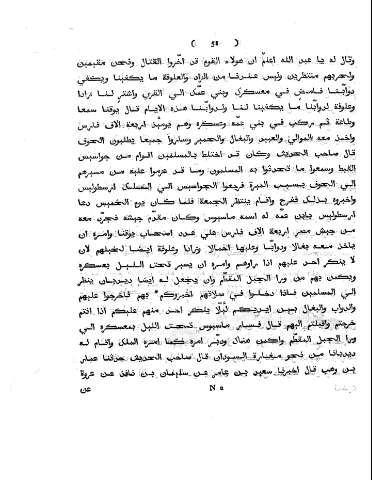 ( 58 )
وقال له يا عبد الله اعلم ان هولاء القوم قد اخّروا القتال ونحن مقيمين
ولحربهم منتظرين وليس عندنا من الزاد والعلوفة ما يكفينا ويكفي
دوابّنا فامض في معسكرى وبني عمّك الي القري واشتر لنا زادا
وعلوفة لدوابّنا ما يكفينا لنا ولدوابّنا هذه الايام قال يوقنا سمعا
وطاعة ثم ركب في بني عمّه وعسكره وهم يوميذ اربعة الاف فارس
واخذ معه الموالي والعبيد والبغال والحمير وساروا جميعا يطلبون الجوف
قال صاحب الحديث وكان قد اختلط بالمسلمين اقوام من جواسيس
القبط وسمعوا ما تحدثوا به المسلمون وما قد عزموا عليه من مسيرهم
الي الجوف بسبب الميرة فرجعوا الجواسيس الي الملك ارسطوليس
واخبروه بذلك ففرح واقام ينتظر الجمعة فلما كان يوم الخميس دعا
ارسطوليس باين عمّه له اسمه ماسيوس وكان مقدّم جيشه فجرّد معه
من جيش مصر اربعة الاف فارس علي عدد اصحاب يوقنا وامره ان
ياخذ معه بغالا ودوابّا وعليها احمالا وزادا وعلوفة ايضا لخيلهم لان
لا ينكر احد عليهم اذا راوهم وامره ان يسير تحت الليل بعسكره
ويكمن بهم من ورا الجبل المقطّم وان يجعل له ايضا ديدبان ينظر
الي المسلمين فاذا دخلوا في صلاتهم اخبروكم بهم فاخرجوا عليهم
والدواب والبغال بين ايديكم ليلّا ينكر احد منهم عليكم اذا انتم
خرجتم واقبلتم اليهم قال فسار ماسيوس تحت الليل بعسكره الي
ورا الجبل المقطّم واكمن هناك ودبّر امره كما امره الملك واقام له
ديدبانا من نحو مغارة السودان قال صاحب الحديث حدّثنا عمار
بن وهب قال اخبرنا سعيد بن عامر عن سليمان بن نافد عن عروة
N 2
عن